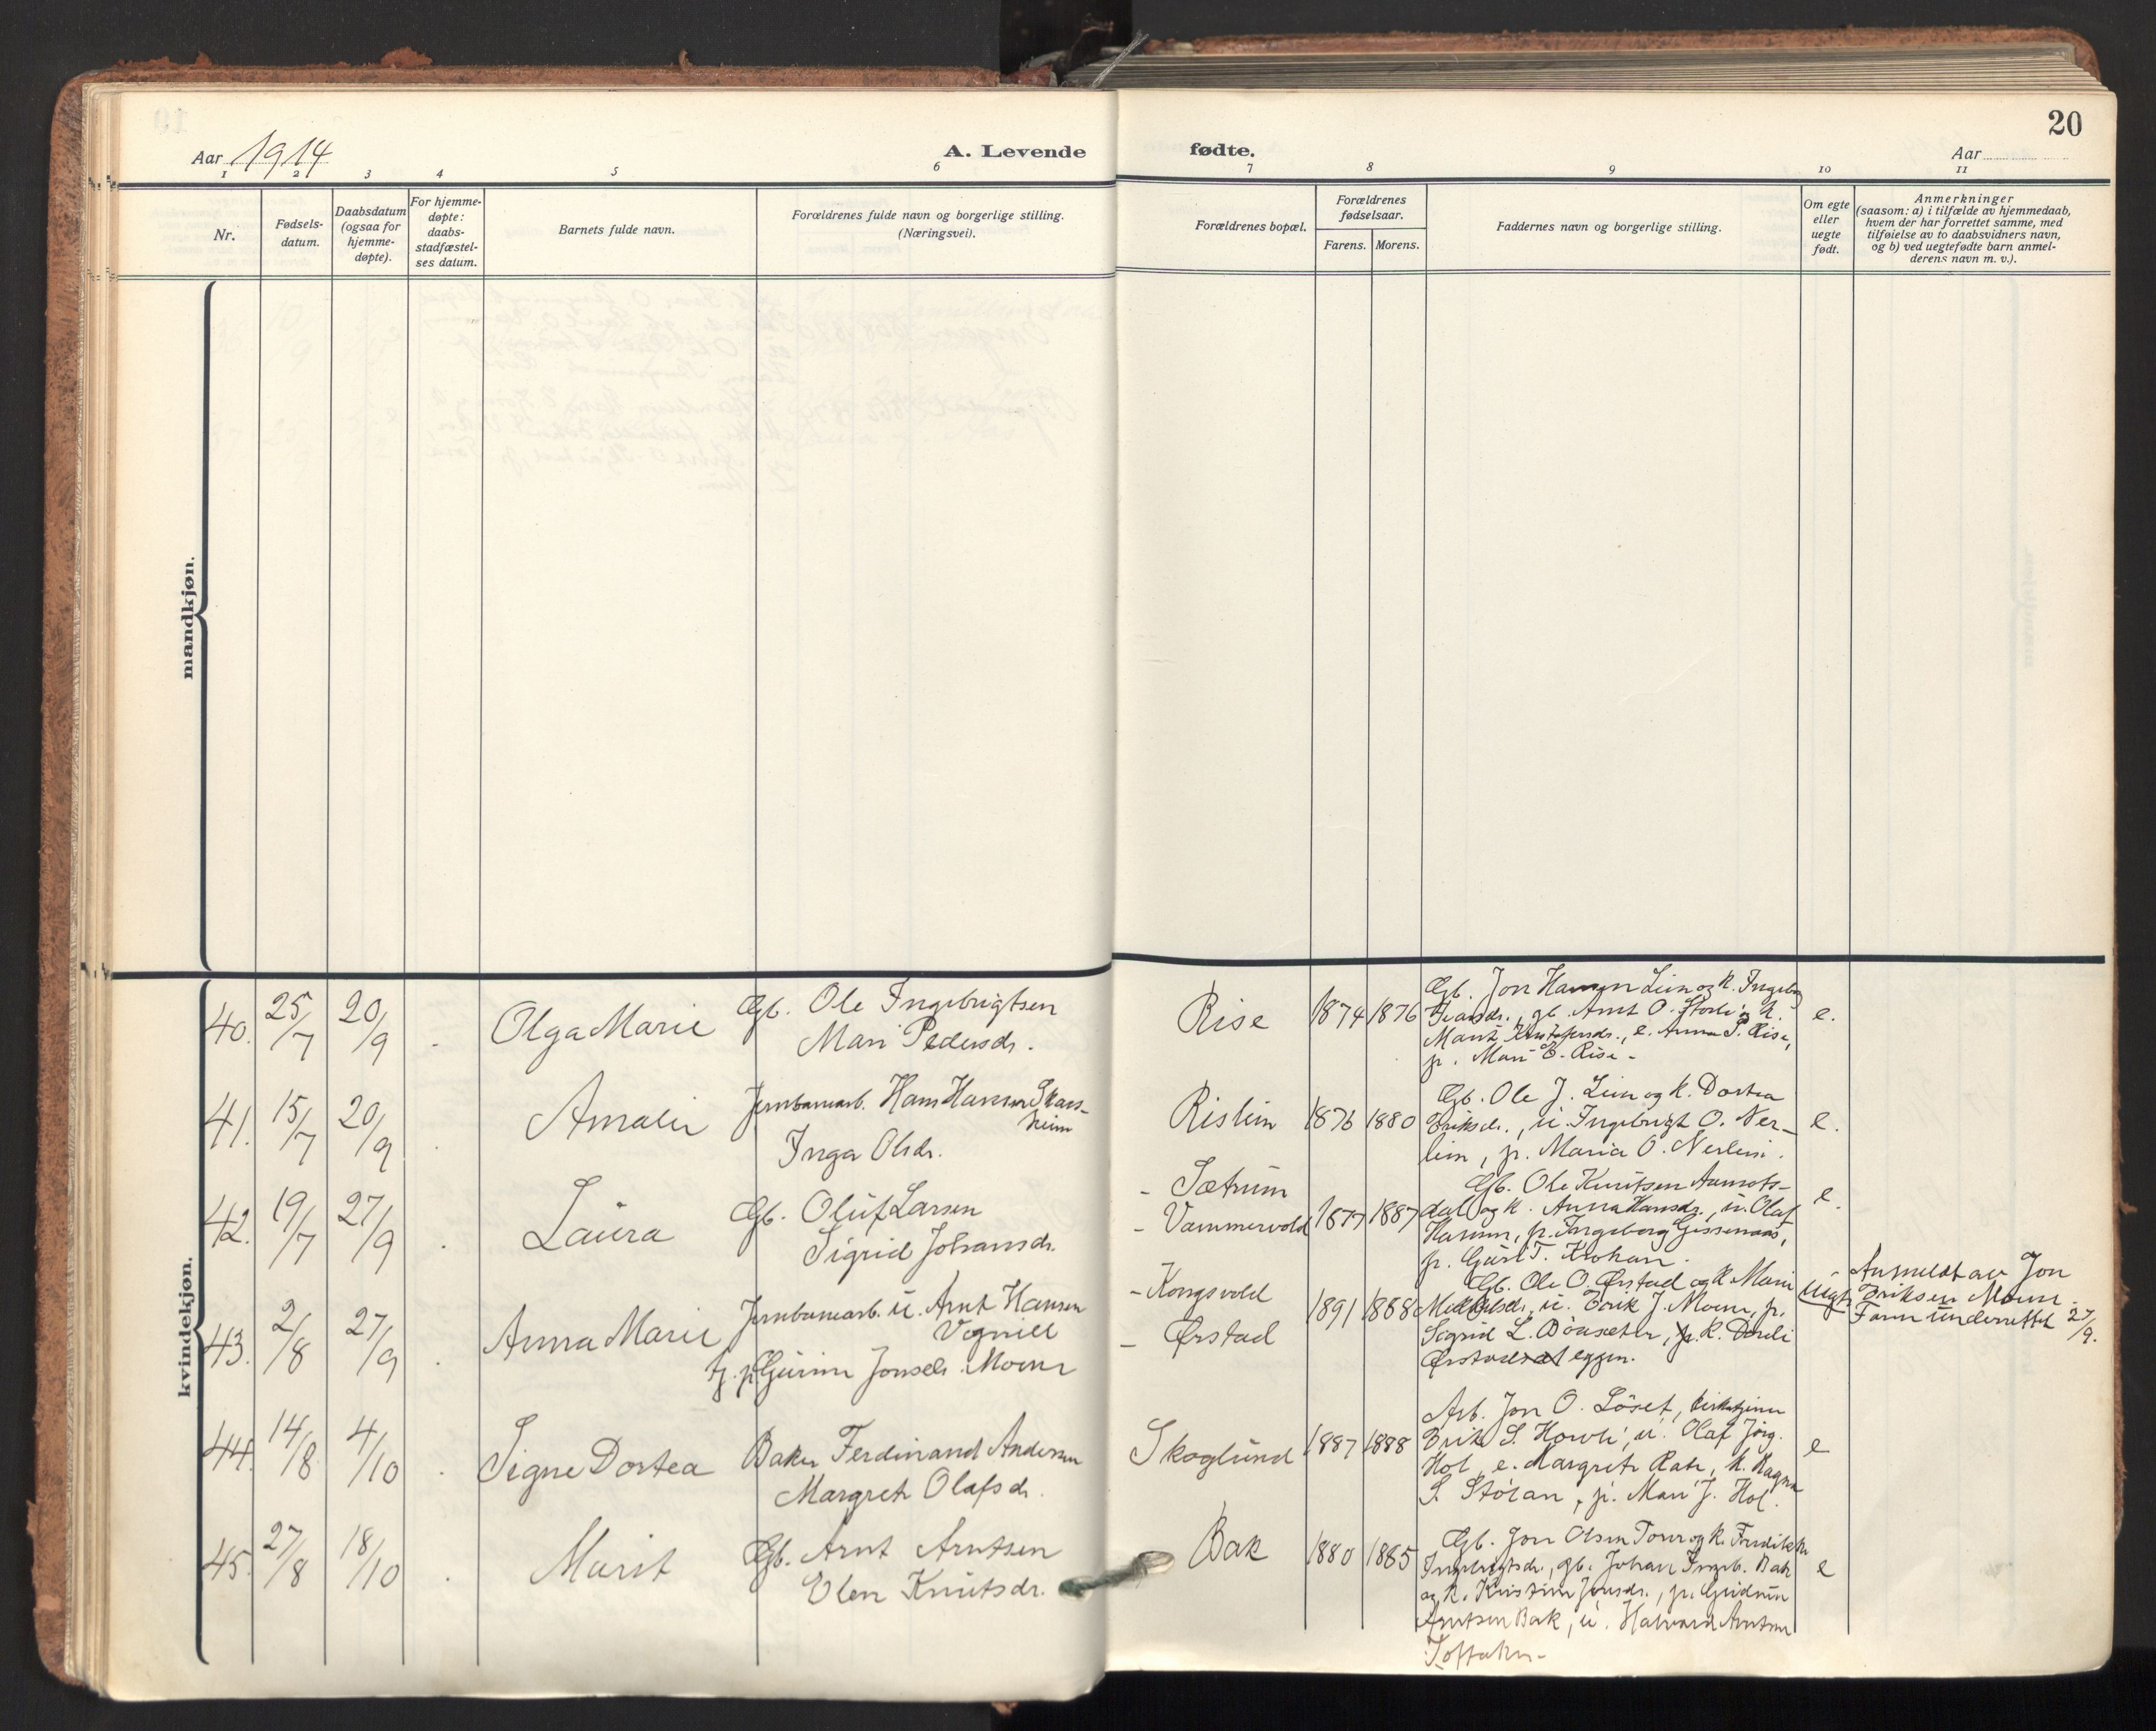 20
Aar 1914
A. Levende
fødte.
Aar
1 2 3 4 5 6 7 8 9 10 11
Nr.
Fødsels-
datum.
Daabsdatum
(ogsaa for
hjemme-
døpte).
For hjemme-
døpte:
daabs-
stadfæstel-
ses datum.
Barnets fulde navn.
Forældrenes fulde navn og borgerlige stilling.
(Næringsvei).
Forældrenes bopæl.
Forældrenes
fødselsaar.
Farens. Morens.
Faddernes navn og borgerlige stilling.
Om egte
eller
uegte
født.
Anmerkninger
(saasom: a) i tilfælde av hjemmedaab,
hvem der har forrettet samme, med
tilføielse av to daabsvidners navn,
og b) ved uegtefødte barn anmel-
derens navn m. v.).
mandkjøn.
kvindekjøn.
40. 25/7 20/9
Olga Marie
Gb. Ole Ingebrigtsen
Mari Pedersdr.
Rise
1874 1876
Gb. Jon Hansen Lien og k. Ingeborg
Ivarsdr., gb. Arnt O. Storli og k.
Marit Kristofersdr., e. Anna P. Rise,
p. Mari E. Rise -
e.
41. 15/7 20/9
Amalie
Jernbanearb. Hans Hansen Skars-
heim
Inga Olsdr.
Rislien
1876 1880
Gb. Ole J. Lien og k. Dortea
Eriksdr., u. Ingebrigt O. Ner-
lien, p. Maria O. Nerlien.
e.
42. 19/7 27/9
Laura
Gb. Oluf Larsen
Sigrid Johansdr.
- Sætrum
- Vammervold
1877 1887
Gb. Ole Knutsen Aamots-
dal og k. Anna Hansdr., u. Olaf
Hansen, p. Ingeborg Gissenaas,
p. Guri T. Krokan.
e.
43. 2/8 27/9
Anna Marie
Jernbanearb. u. Arnt Hansen
Vognill
tj. p. Gurine Jonsdr. Moen
- Kongsvold
- Ørstad
1891 1888
Gb. Ole O. Ørstad og k. Mari
Mikkelsdr., u. Erik J. Moen, p.
Sigrid L. Böasæter, p. K. Dordi
Ørstad eggen.
uegte
Anmeldt av Jon
Eriksen Moen.
Faren underrettet 27/9.
44. 14/8 4/10
Signe Dortea
Baker Ferdinand Andersen
Margrete Olafsdr.
Skoglund
1887 1888
Arb. Jon O. Löset, kirketjener
Erik S. Horvli, u. Olaf Jörg.
Hol, e. Margrete Rate, k. Ragna
S. Stölan, p. Mari J. Hol.
e
45. 27/8 18/10
Marit
Gb. Arnt Arntsen
Elen Knutsdr.
Bak
1880 1885
Gb. Jon Olsen Tørve og k. Fredrikke
Ingebrigtsdr., gb. Johan Ingeb. Bak
og k. Kristine Jonsdr., p. Gudrun
Arntsen Bak, u. Halvard Arntsen
Toftaker -
e